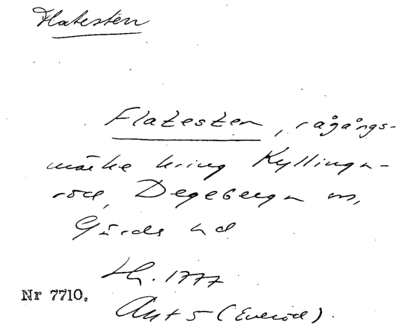 Flatesten
Flatesten, rågångs-
märke kring Kyllinga-
röd, Degeberga sn,
Gärds hd
Lh. 1777
Akt 5 (Everöd).
Nr 7710.